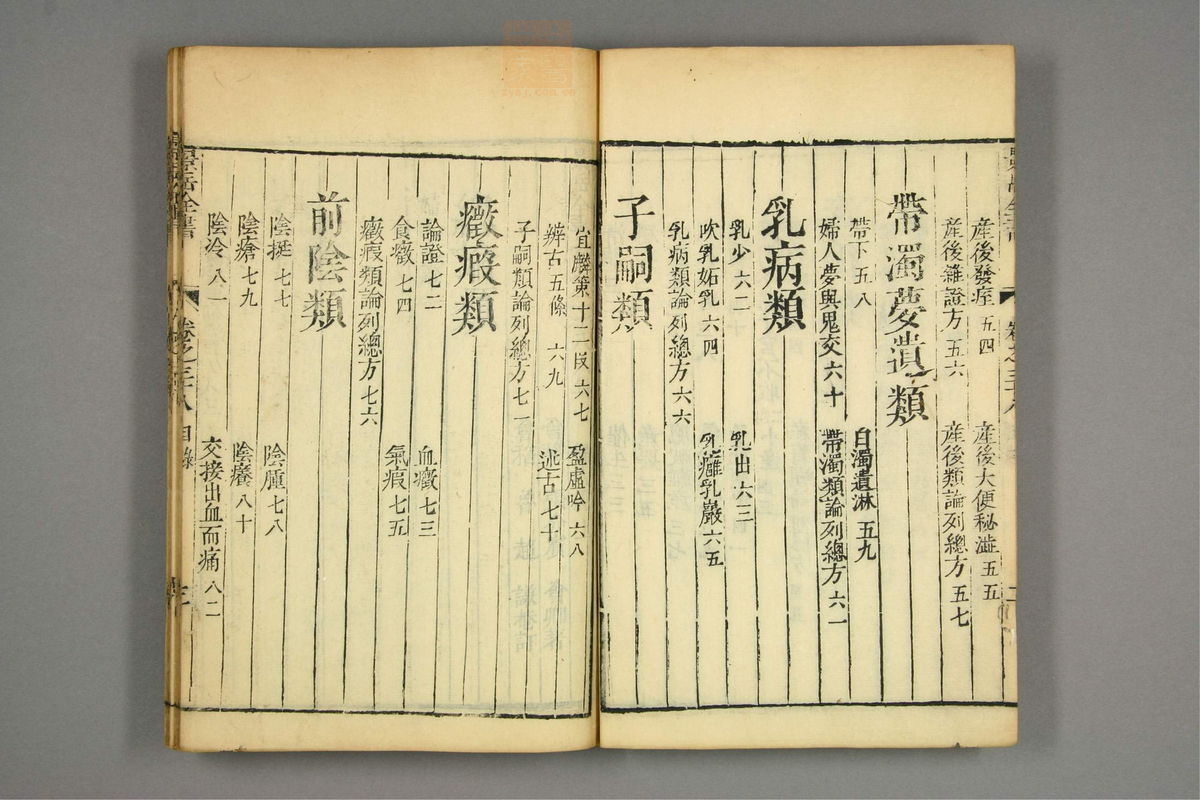 産後發痓 五四　産後大便秘澁 五五
産後雜證方 五六　産後類論列總方 五七
帶濁夢遺類
帶下 五八　白濁遺淋 五九
婦人夢與鬼交 六十　帶濁類論列總方 六一
乳病類
乳少 六二　乳出 六三
吹乳妬乳 六四　乳癰乳巖 六五
乳病類論列總方 六六
子嗣類
宜麟策十二段 六七　盈虛吟 六八
辨古五條 六九　述古 七十
子嗣類論列總方 七一
癥瘕類
論證 七二　血癥 七三
食癥 七四　氣瘕 七五
癥瘕類論列總方 七六
前陰類
陰挺 七七　陰腫 七八
陰瘡 七九　陰癢 八十
陰冷 八一　交接出血而痛 八二
景岳全書 卷之三十八 目錄